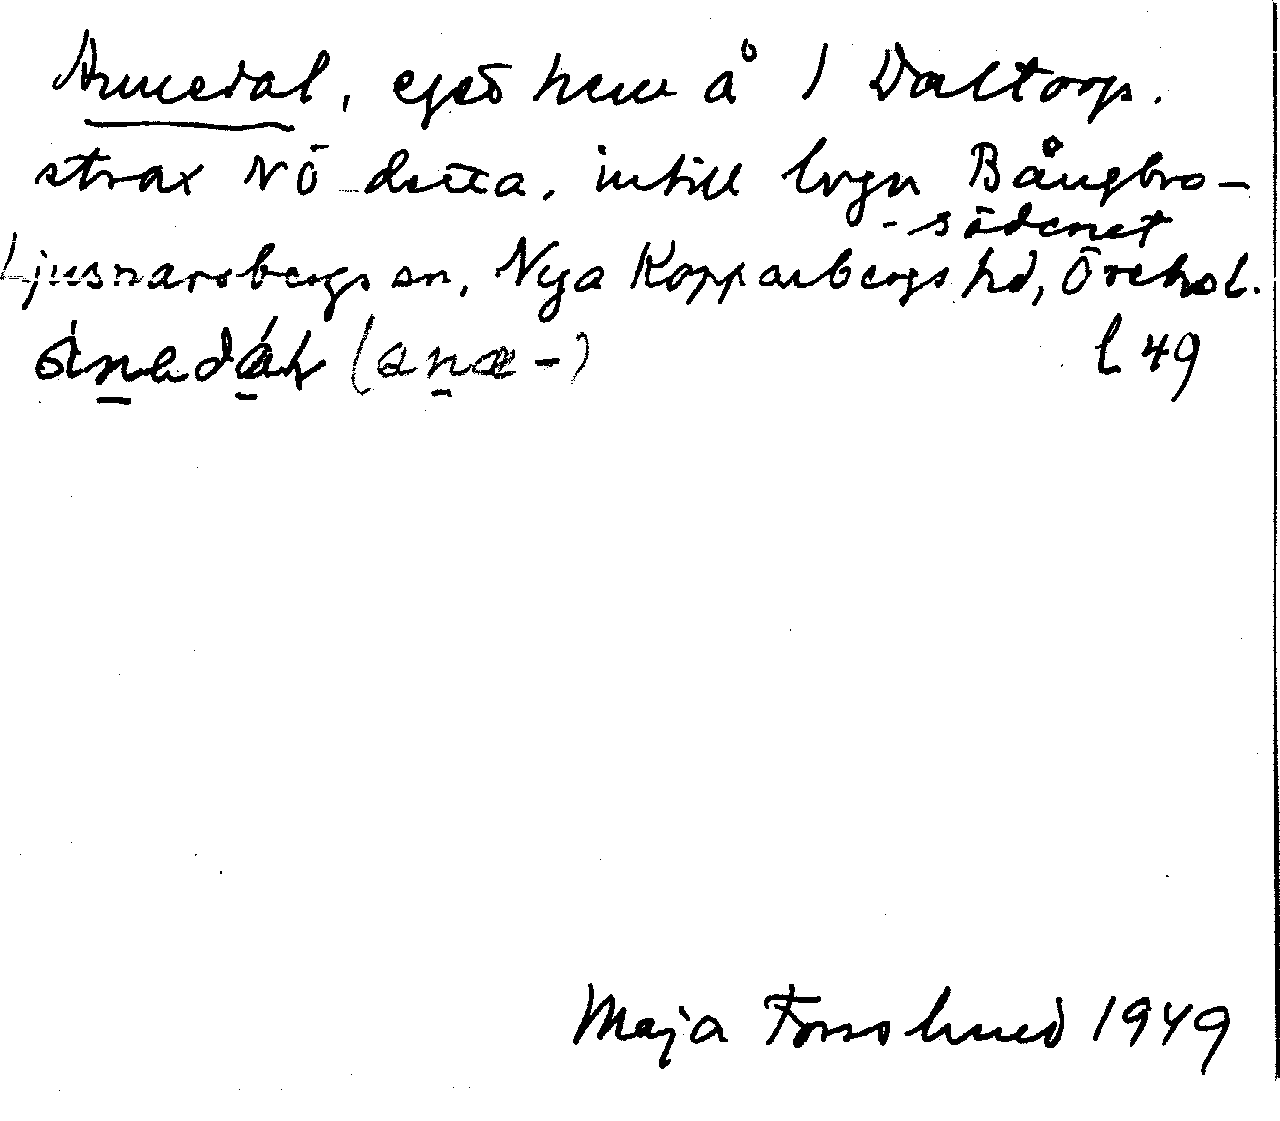 Annedal, eget hem å 1 Daltorp.
strax NÖ detta, intill lvgn Bångbro-
-söderut
Ljusnarsbergs sn, Nya Kopparbergs hd, Örebro l.
l 49
Maja Forsslund 1949